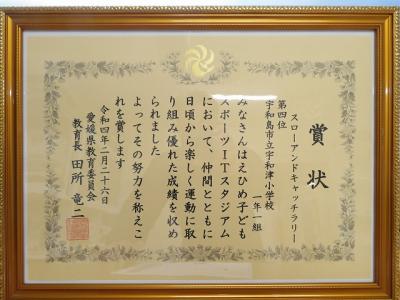 賞状
スローアンドキャッチラリー
第四位
宇和島市立宇和津小学校
一年一組
みなさんはえひめ子ども
スポーツITスタジアム
において、仲間とともに
日頃から楽しく運動に取
り組み優れた成績を収め
られました
よってその努力を称えこ
れを賞します
令和四年二月二十六日
愛媛県教育委員会
教育長 田所竜二